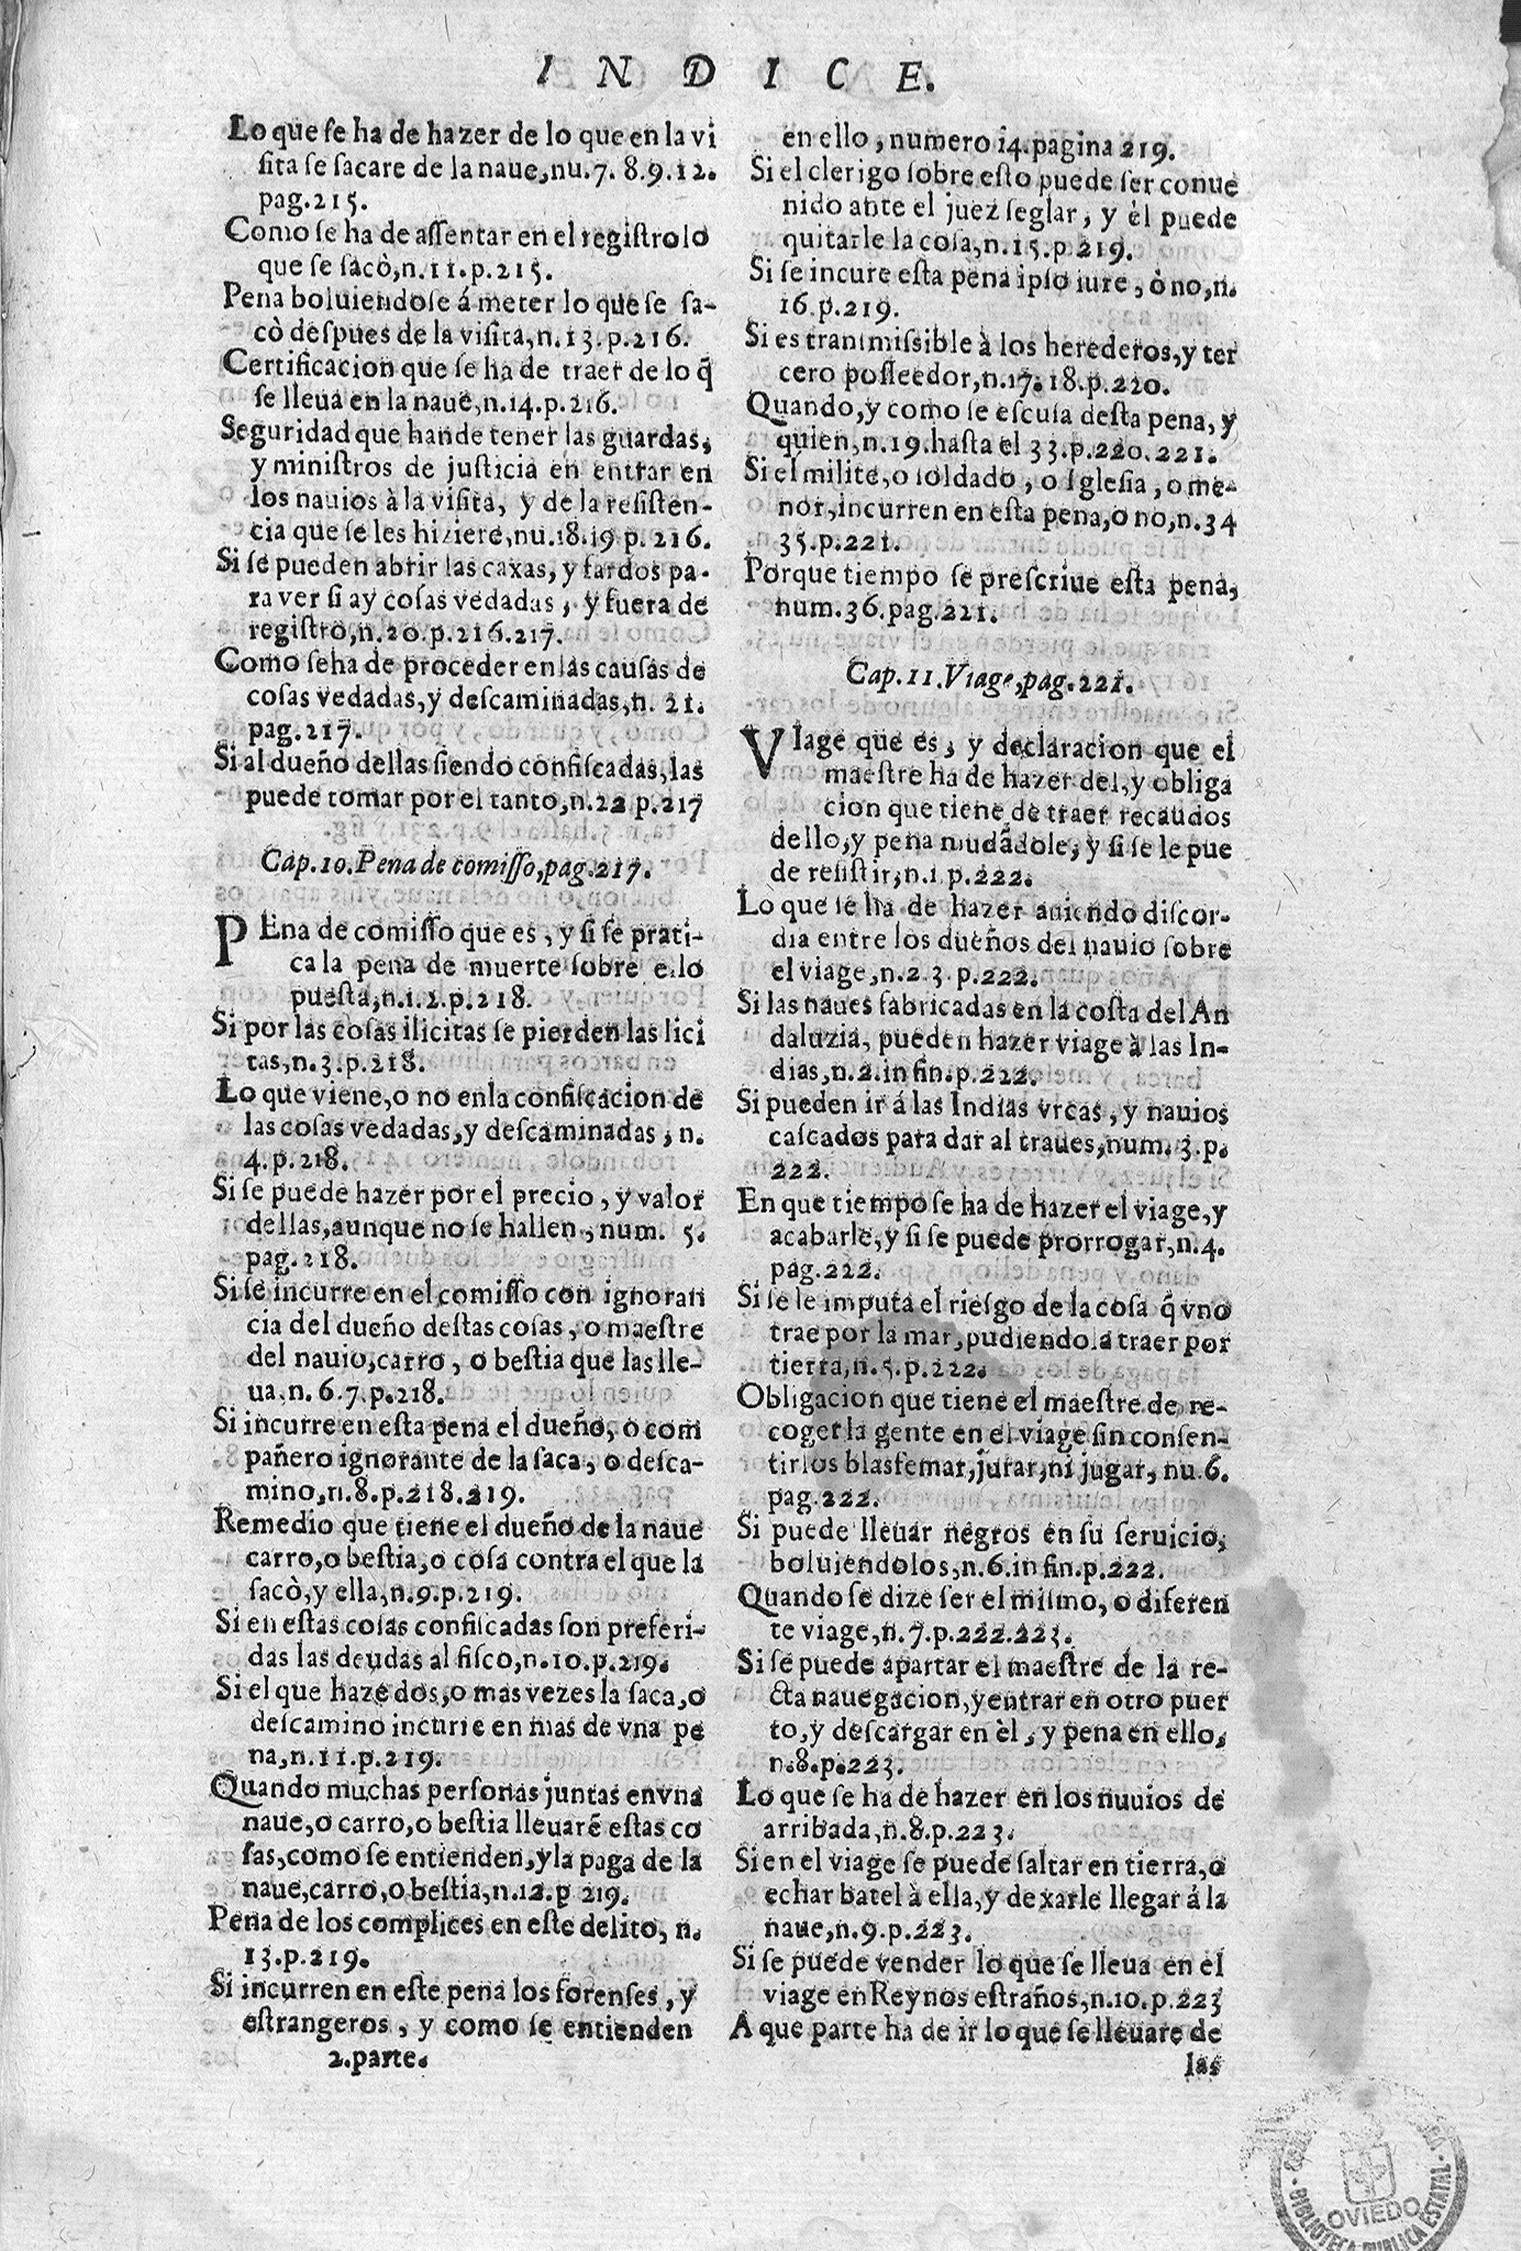 INDICE.
Lo que se ha de hazer de lo que en la vi
sita se sacare de la naue, nu. 7. 8. 9. 12.
pag. 215.
Como se ha de assentar en el registro lo
que se sacò, n. 11. p. 215.
Pena boluiendose á meter lo que se sa-
cò despues de la visita, n. 13. p. 216.
Certificacion que se ha de traer de lo q̃
se lleua en la naue, n. 14. p. 216.
Seguridad que hande tener las guardas,
y ministros de justicia en entrar en
los nauios à la visita, y de la resisten-
cia que se les hiziere, nu. 18. 19 p. 216.
Si se pueden abrir las caxas, y fardos pa-
ra ver si ay cosas vedadas, y fuera de
registro, n. 20. p. 216. 217.
Como seha de proceder en las causas de
cosas vedadas, y descaminadas, n. 21.
pag. 217.
Si al dueño dellas siendo confiscadas, las
puede tomar por el tanto, n. 22 p. 217
Cap. 10. Pena de comisso, pag. 217.
PEna de comisso que es, y si se prati-
ca la pena de muerte sobre ello
puesta, n. 1. 2. p. 218.
Si por las cosas ilicitas se pierden las lici
tas, n. 3. p. 218.
Lo que viene, o no enla confiscacion de
las cosas vedadas, y descaminadas, n.
4. p. 218.
Si se puede hazer por el precio, y valor
dellas, aunque no se hallen, num. 5.
pag. 218.
Si se incurre en el comisso con ignoran
cia del dueño destas cosas, o maestre
del nauio, carro, o bestia que las lle-
ua, n. 6. 7. p. 218.
Si incurre en esta pena el dueño, o com
pañero ignorante de la saca, o desca-
mino, n. 8. p. 218. 219.
Remedio que tiene el dueño de la naue
carro, o bestia, o cosa contra el que la
sacò, y ella, n. 9. p. 219.
Si en estas cosas confiscadas son preferi-
das las deudas al fisco, n. 10. p. 219.
Si el que haze dos, o mas vezes la saca, o
descamino incurre en mas de vna pe
na, n. 11. p. 219.
Quando muchas personas juntas envna
naue, o carro, o bestia lleuarẽ estas co
sas, como se entienden, y la paga de la
naue, carro, o bestia, n. 12. p 219.
Pena de los complices en este delito, n.
13. p. 219.
Si incurren en este pena los forenses, y
estrangeros, y como se entienden
2. parte.
en ello, numero 14. pagina 219.
Si el clerigo sobre esto puede ser conue
nido ante el juez seglar, y èl puede
quitarle la cosa, n. 15. p. 219.
Si se incure esta pena ipso iure, ò no, n.
16. p. 219.
Si es transmissible à los herederos, y ter
cero posseedor, n. 17. 18. p. 220.
Quando, y como se escusa desta pena, y
quien, n. 19. hasta el 33. p. 220. 221.
Si el milite, o soldado, o Iglesia, o me-
nor, incurren en esta pena, o no, n. 34
35. p. 221.
Porque tiempo se prescriue esta pena,
num. 36. pag. 221.
Cap. 11. Viage, pag. 221.
VIage que es, y declaracion que el
maestre ha de hazer del, y obliga
cion que tiene de traer recaudos
dello, y pena mudãdole, y si se le pue
de resistir, n. 1. p. 222.
Lo que se ha de hazer auiendo discor-
dia entre los dueños del nauio sobre
el viage, n. 2. 3. p. 222.
Si las naues fabricadas en la costa del An
daluzia, pueden hazer viage à las In-
dias, n. 2. in fin. p. 222.
Si pueden ir á las Indias vrcas, y nauios
cascados para dar al traues, num. 3. p.
222.
En que tiempo se ha de hazer el viage, y
acabarle, y si se puede prorrogar, n. 4.
pag. 222.
Si se le imputa el riesgo de la cosa q̃ vno
trae por la mar, pudiendola traer por
tierra, n. 5. p. 222.
Obligacion que tiene el maestre de re-
coger la gente en el viage sin consen-
tirlos blasfemar, jurar, ni jugar, nu. 6.
pag. 222.
Si puede lleuar negros en su seruicio,
boluiendolos, n. 6. in fin. p. 222.
Quando se dize ser el mismo, o diferen
te viage, n. 7. p. 222. 223.
Si se puede apartar el maestre de la re-
cta nauegacion, y entrar en otro puer
to, y descargar en èl, y pena en ello,
n. 8. p. 223.
Lo que se ha de hazer en los nuuios de
arribada, n. 8. p. 223.
Si en el viage se puede saltar en tierra, o
echar batel à ella, y dexarle llegar á la
naue, n. 9. p. 223.
Si se puede vender lo que se lleua en el
viage en Reynos estraños, n. 10. p. 223
A que parte ha de ir lo que se lleuare de
las
BIBLIOTECA PUBLICA ESTATAL
OVIEDO